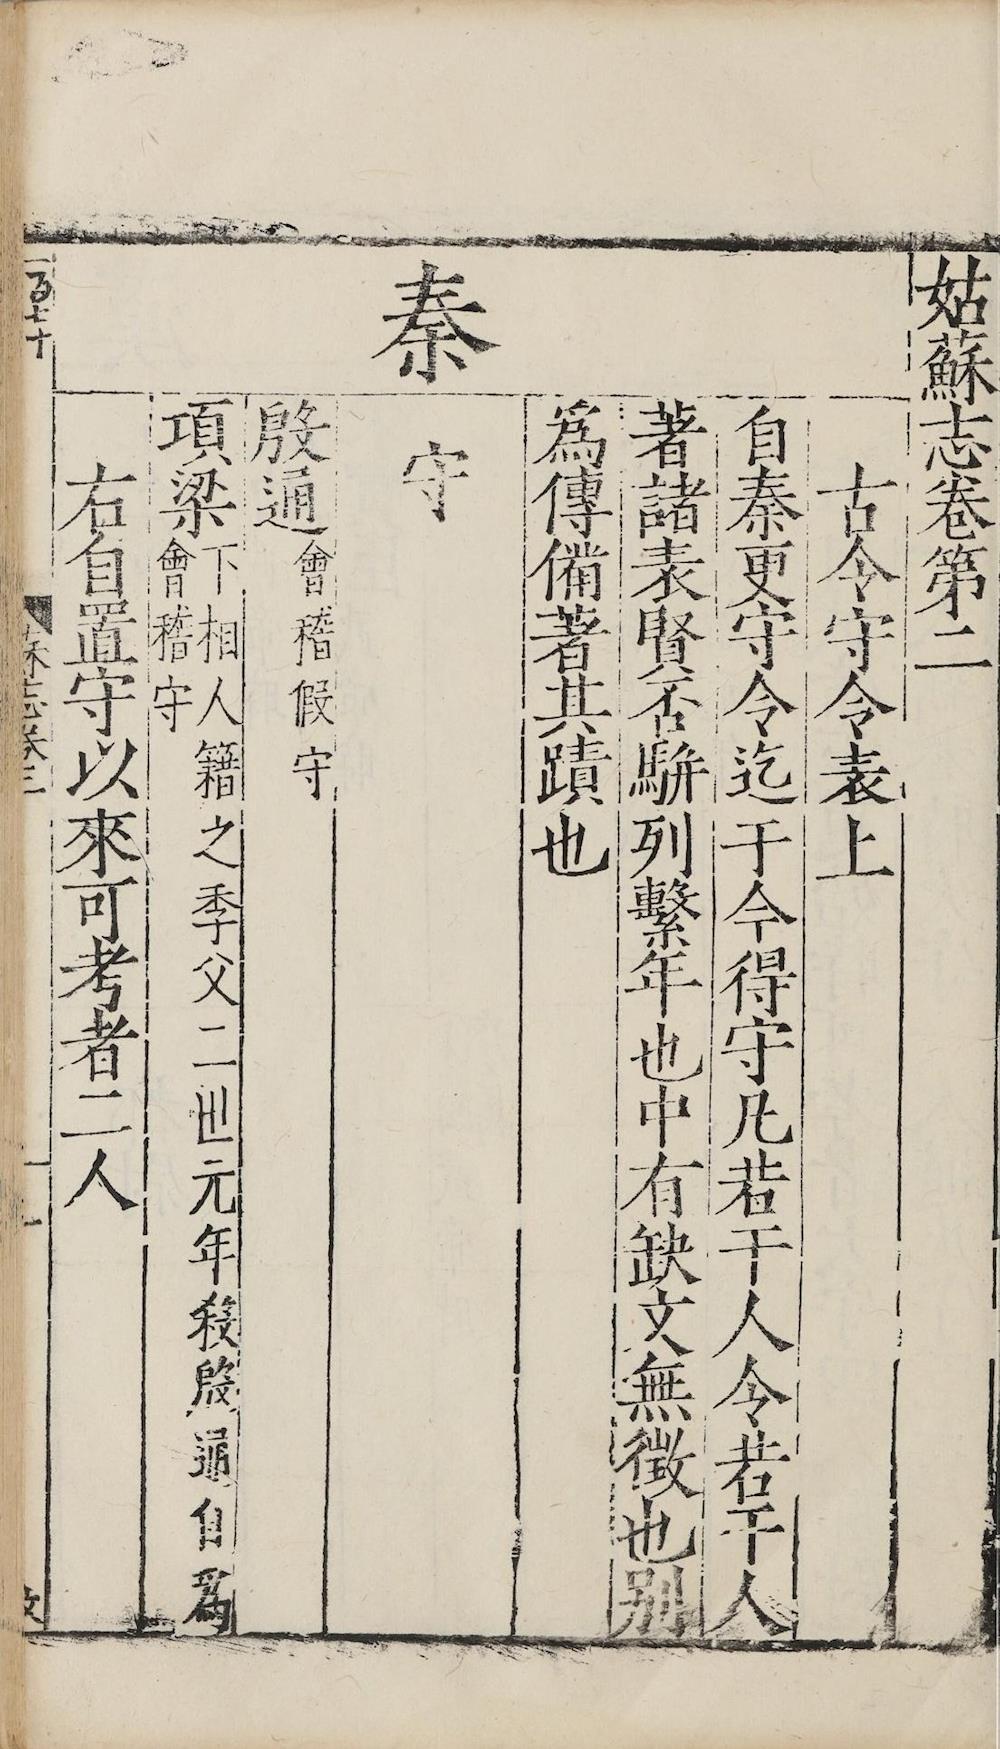 姑蘇志卷第二
古今守令表上
自秦更守令迄于今得守凡若干人令若干人
著諸表賢否駢列繫年也中有缺文無徵也別
爲傳備著其蹟也
秦
守
殷通會稽假守
項梁下相人籍之季父二世元年殺殷通自爲
會稽守
右自置守以來可考者二人
蘇志卷三